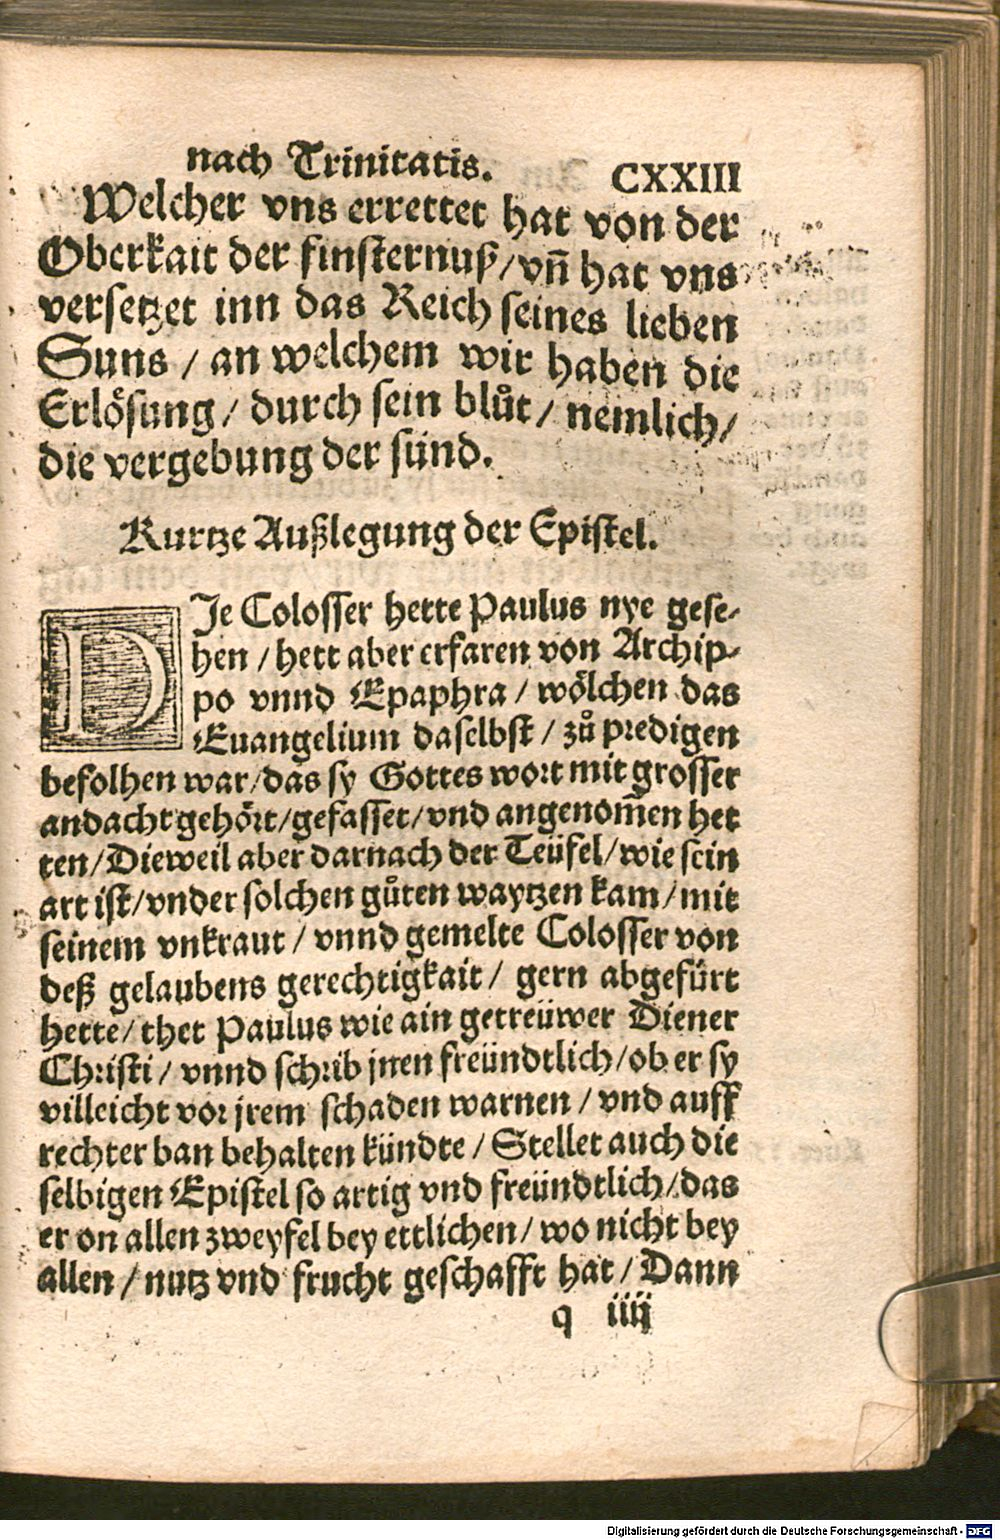 nach Trinitatis. CXXIII
Welcher vns errettet hat von der
Oberkait der finsternuß/ vñ hat vns
versetzet inn das Reich seines lieben
Suns / an welchem wir haben die
Erlösung/ durch sein blůt/ nemlich/
die vergebung der sünd.
Kurtze Außlegung der Epistel.
DJe Colosser hette Paulus nye gese-
hen / hett aber erfaren von Archip-
po vnnd Epaphra / wölchen das
Euangelium daselbst / zů predigen
befolhen war/das sy Gottes wort mit grosser
andacht gehört/gefasset/vnd angenom̄en het
ten/Dieweil aber darnach der Teüfel/wie sein
art ist/vnder solchen gůten waytzen kam/mit
seinem vnkraut / vnnd gemelte Colosser von
deß gelaubens gerechtigkait/ gern abgefürt
hette/ thet Paulus wie ain getreüwer Diener
Christi/ vnnd schrib jnen freündtlich/ob er sy
villeicht vor jrem schaden warnen / vnd auff
rechter ban behalten kündte / Stellet auch die
selbigen Epistel so artig vnd freündtlich/das
er on allen zweyfel bey ettlichen/ wo nicht bey
allen / nutz vnd frucht geschafft hat/ Dann
q iiij
Digitalisierung gefördert durch die Deutsche Forschungsgemeinschaft - DFG